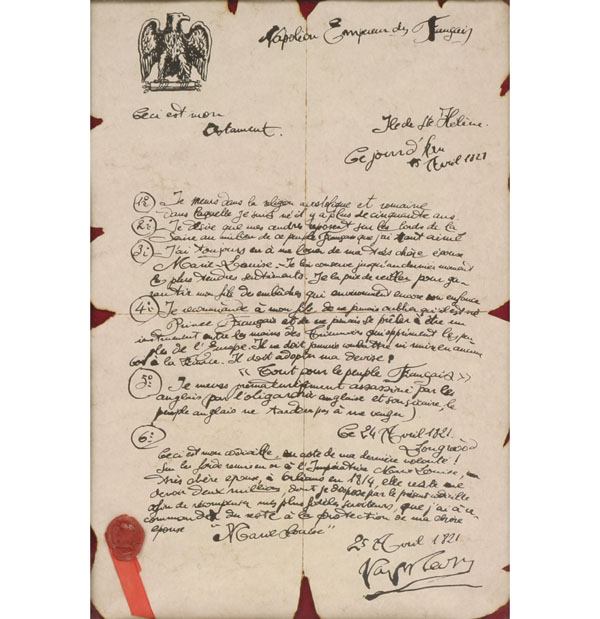 Napoléon Empereur des Français
Ceci est mon
testament.
Ile de Ste Hélène.
Ce jourd'hui
15 Avril 1821
1º Je meurs dans la religion apostolique et romaine
dans laquelle je suis né il y a plus de cinquante ans.
2º Je désire que mes cendres reposent sur les bords de la
Seine au milieu de ce peuple français que j'ai tant aimé
3º J'ai toujours eu à me louer de ma très chère épouse
Marie Louise. Je lui conserve jusqu'au dernier moment
les plus tendres sentiments. Je la prie de veiller pour ga-
rantir mon fils des embûches qui environnent encore son enfance
4º Je recommande à mon fils de ne jamais oublier qu'il est né
Prince Français et de ne jamais se prêter à être un
instrument entre les mains des qui oppriment les peu-
ples de l'Europe. Il ne doit jamais combattre ni nuire en aucun
à la France. Il doit adopter ma devise:
"Tout pour le peuple Français"
5º Je meurs prématurément assassiné par les
anglais par l'oligarchie anglaise et son sicaire, le
peuple anglais ne tardera pas à me venger)
Ce 24 Avril 1821.
Longwood
6º
Ceci est mon codicille, ou acte de ma dernière volonté!
Sur les fonds remis en or à l'Impératrice Marie Louise, ma
très chère épouse, à Orléans en 1814, elle reste me
devoir deux millions dont je dispose par le présent codicille
afin de récompenser mes plus fidèles serviteurs, que j'ai
du reste à la protection de ma chère
épouse "Marie Louise"
25 Avril 1821
Napoléon